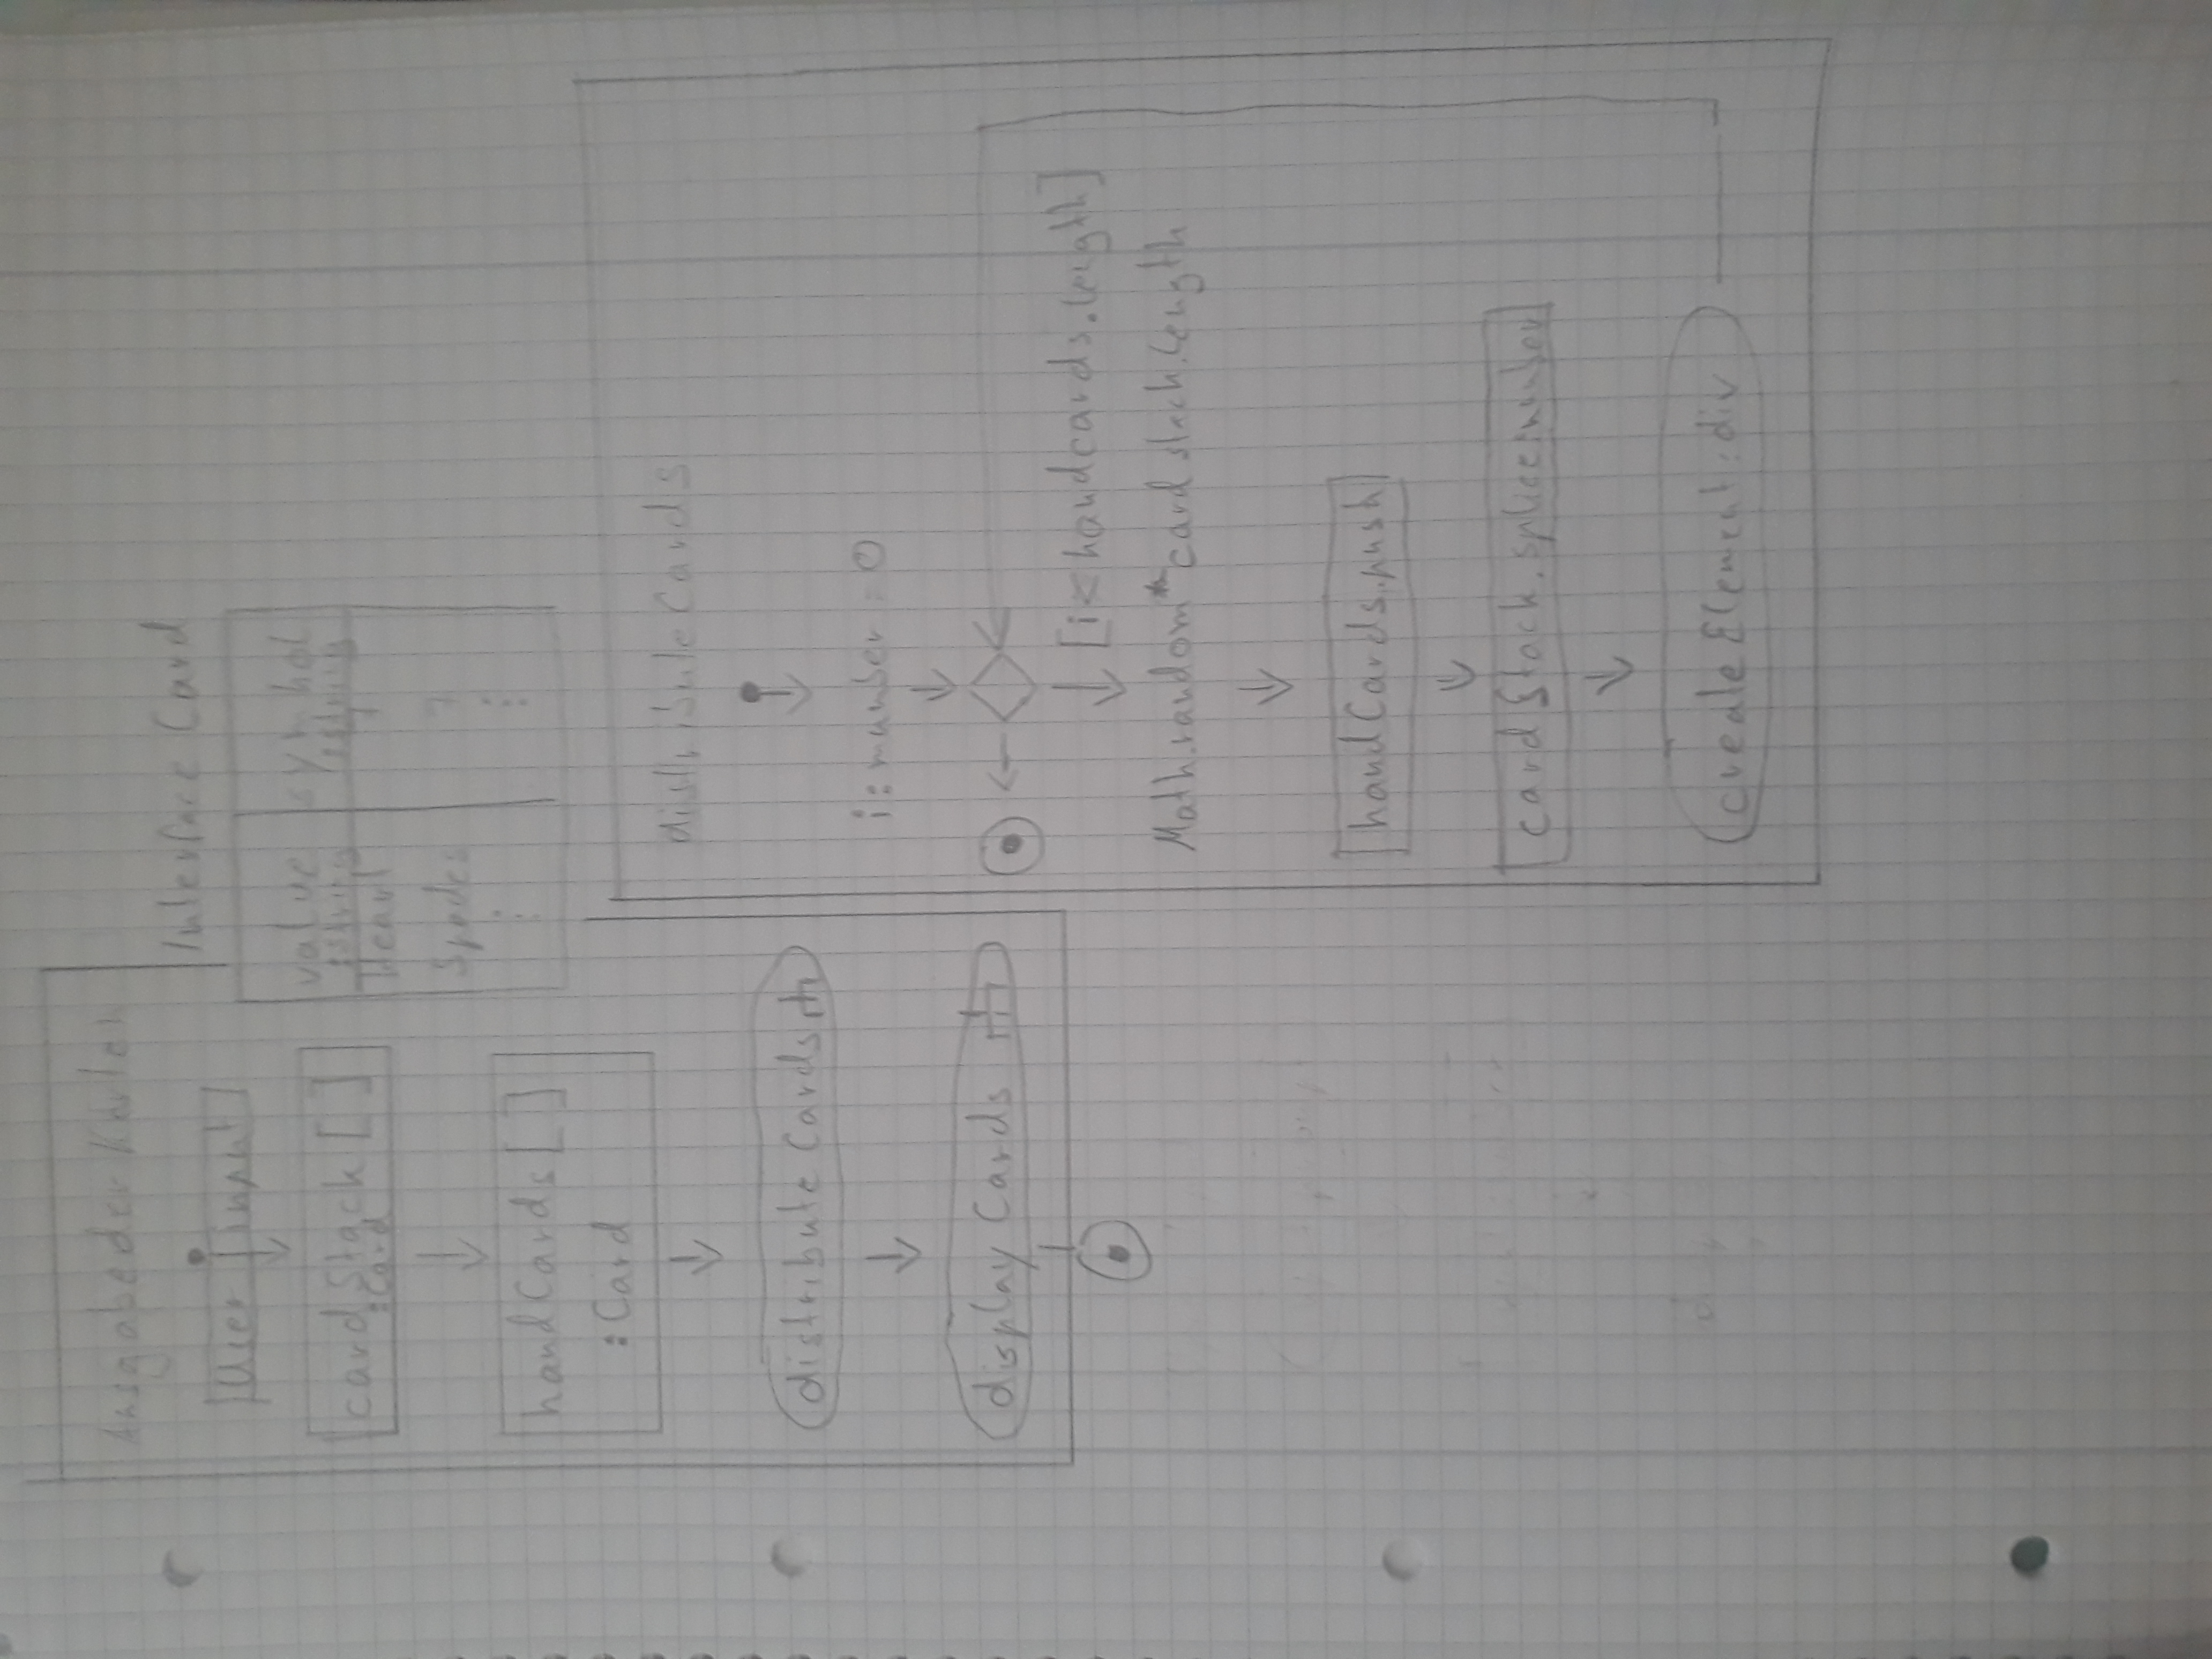 Ausgabe der Karten
User input
cardStack [ ]
:Card
handCards [ ]
:Card
distribute Cards
display Cards
Interface Card
value symbol
:string :string
Heart
Spades 7
distribute Cards
i : number = 0
[i < handcards.length]
Math.random * cardstack.length
handCards.push
cardStack.splice:number
createElement:div